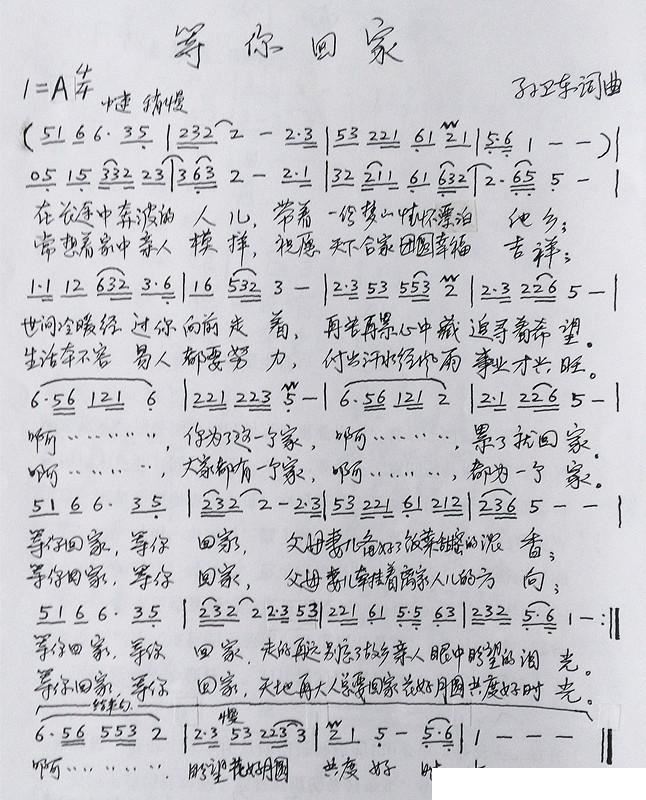 等你回家
1=A 4/4 中速 稍慢 孙卫东词曲
(51 6 6· 35 | 232 2 - 2·3 | 53 221 61 21 | 5·6 1 - - ) |
05 15 332 23 | 363 2 - 2·1 | 32 211 61 632 | 2·65 5 - |
在长途中奔波的 人儿, 带着一份梦山情怀漂泊 他乡;
常想着家中亲人 模样, 祝愿天下合家团圆幸福 吉祥;
1·1 12 632 3·6 | 16 532 3 - | 2·3 53 553 2 | 2·3 226 5 - |
世间冷暖经过你向前走着, 再苦再累心中藏追寻着希望。
生活本不容易人都要努力, 付出汗水经风雨事业才兴旺。
6·56 121 6 | 221 223 5 - | 6·56 121 2 | 2·1 226 5 - |
啊………, 你为了这一个家, 啊………, 累了就回家.
啊………, 大家都有一个家, 啊………, 都为一个家。
51 6 6· 35 | 232 2 - 2·3 | 53 221 61 212 | 236 5 - - |
等你回家, 等你 回家, 父母妻儿备好了饭菜甜蜜的浓香;
等你回家, 等你 回家, 父母妻儿牵挂着离家人儿的方向;
51 6 6· 35 | 232 2 2·3 53 | 221 61 5·5 63 | 232 5·6 1 - :‖
等你回家, 等你 回家, 走的再远别忘了故乡亲人眼中盼望的泪光。
等你回家, 等你 回家, 天地再大人总要回家花好月圆共度好时光。
结束句 慢
6·56 553 2 | 2·3 53 223 3 | 2 1 5 - 5·6 | 1 - - - ‖
啊………. 盼望花好月圆 共度好 时